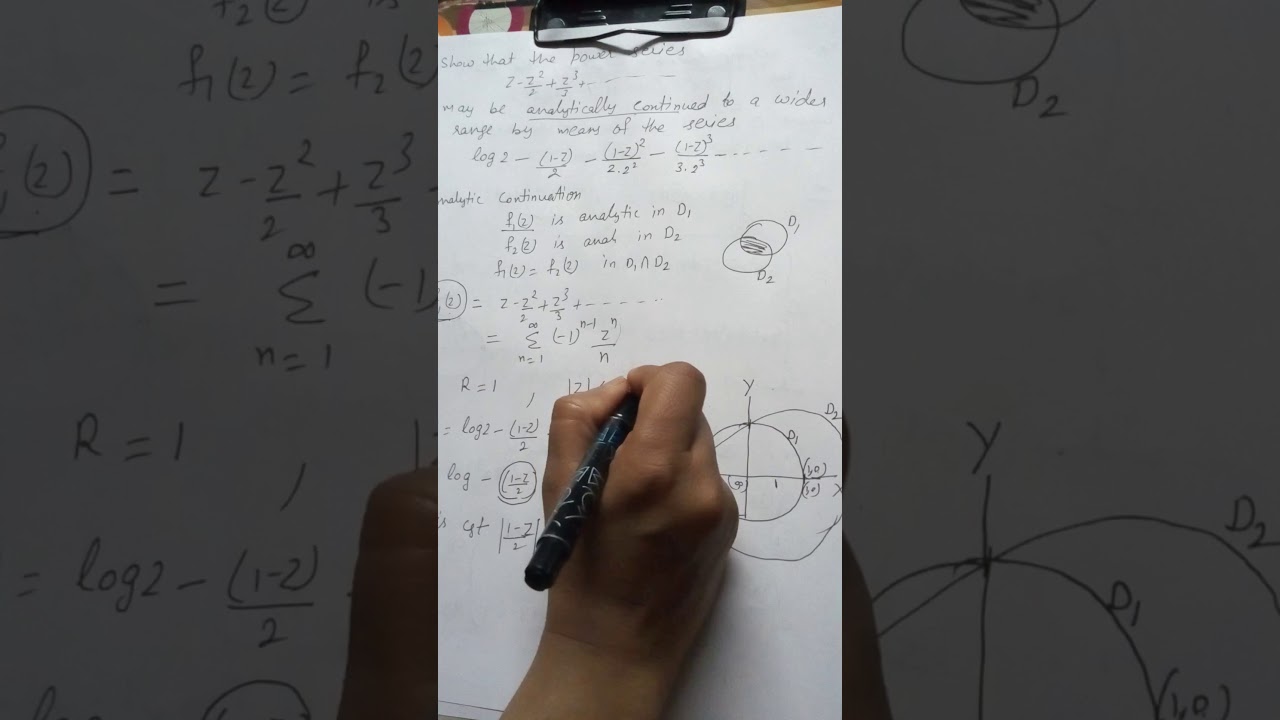 show that the power series
z - z²/2 + z³/3 + - - - - - -
may be analytically continued to a wider
range by means of the series
log 2 - (1-z)/2 - (1-z)²/2·2² - (1-z)³/3·2³ - - - - - -
analytic continuation
f₁(z) is analytic in D₁
f₂(z) is anal in D₂
f₁(z) = f₂(z) in D₁∩D₂
D₁
D₂
f₁(z) = z - z²/2 + z³/3 + - - - - - -
= ∞ Σ n=1 (-1)ⁿ⁻¹ zⁿ/n
R = 1 , |z|
= log2 - (1-z)/2
log - (1-z/2)
is cgt |1-z/2|
Y
D₂
D₁
(1,0)
(1,0)
1
X